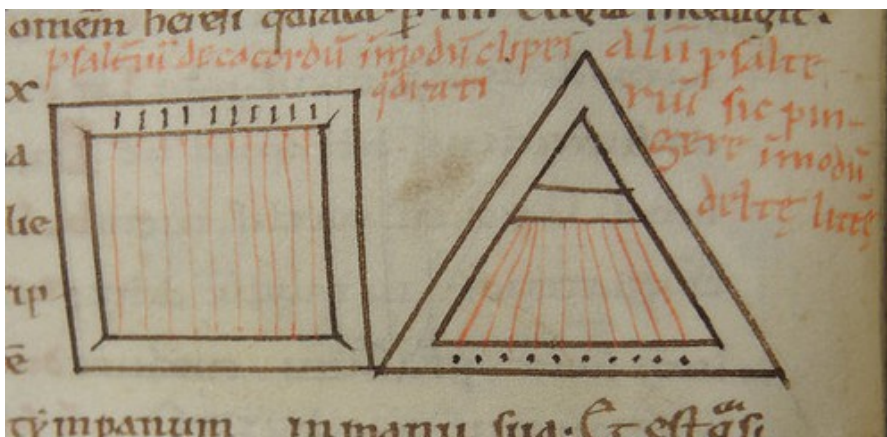 omēm heresi
psaltiuī decacordū īmodū clipei
qͣdrati
aliī psalte
riū sic pin-
gere īmodū
deltę littę
x
a
lie
rip
ē
tympanum in manu sua. Et est qͣsi